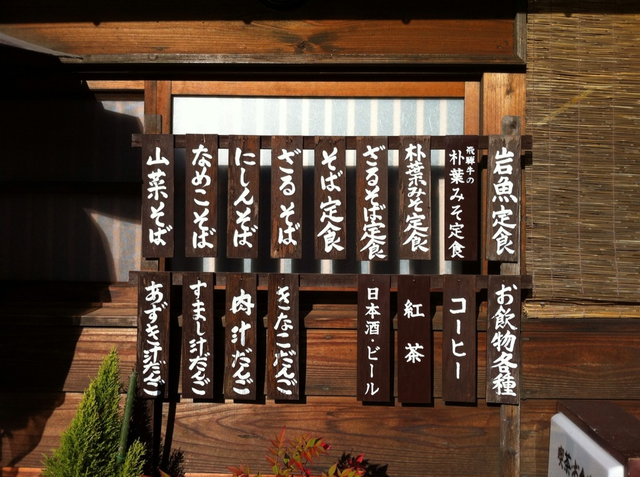 岩魚定食
飛騨牛の
朴葉みそ定食
朴葉みそ定食
ざるそば定食
そば定食
ざるそば
にしんそば
なめこそば
山菜そば
お飲物各種
コーヒー
紅茶
日本酒・ビール
きなこだんご
肉汁だんご
すまし汁だんご
あずき汁だんご